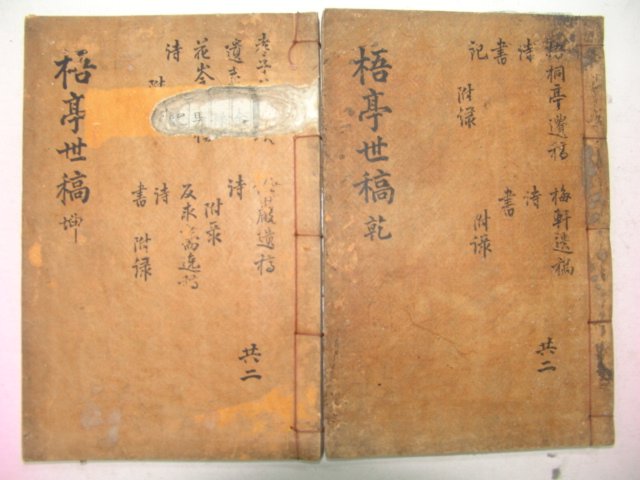 梧桐亭遺稿 梅軒逸稿
詩 詩
書 書
記
附錄 附錄
共二
梧亭世稿 乾
遺
詩 詩
花岑
附
巖遺稿
附錄
反求 逸稿
詩
書 附錄
共二
梧亭世稿 坤